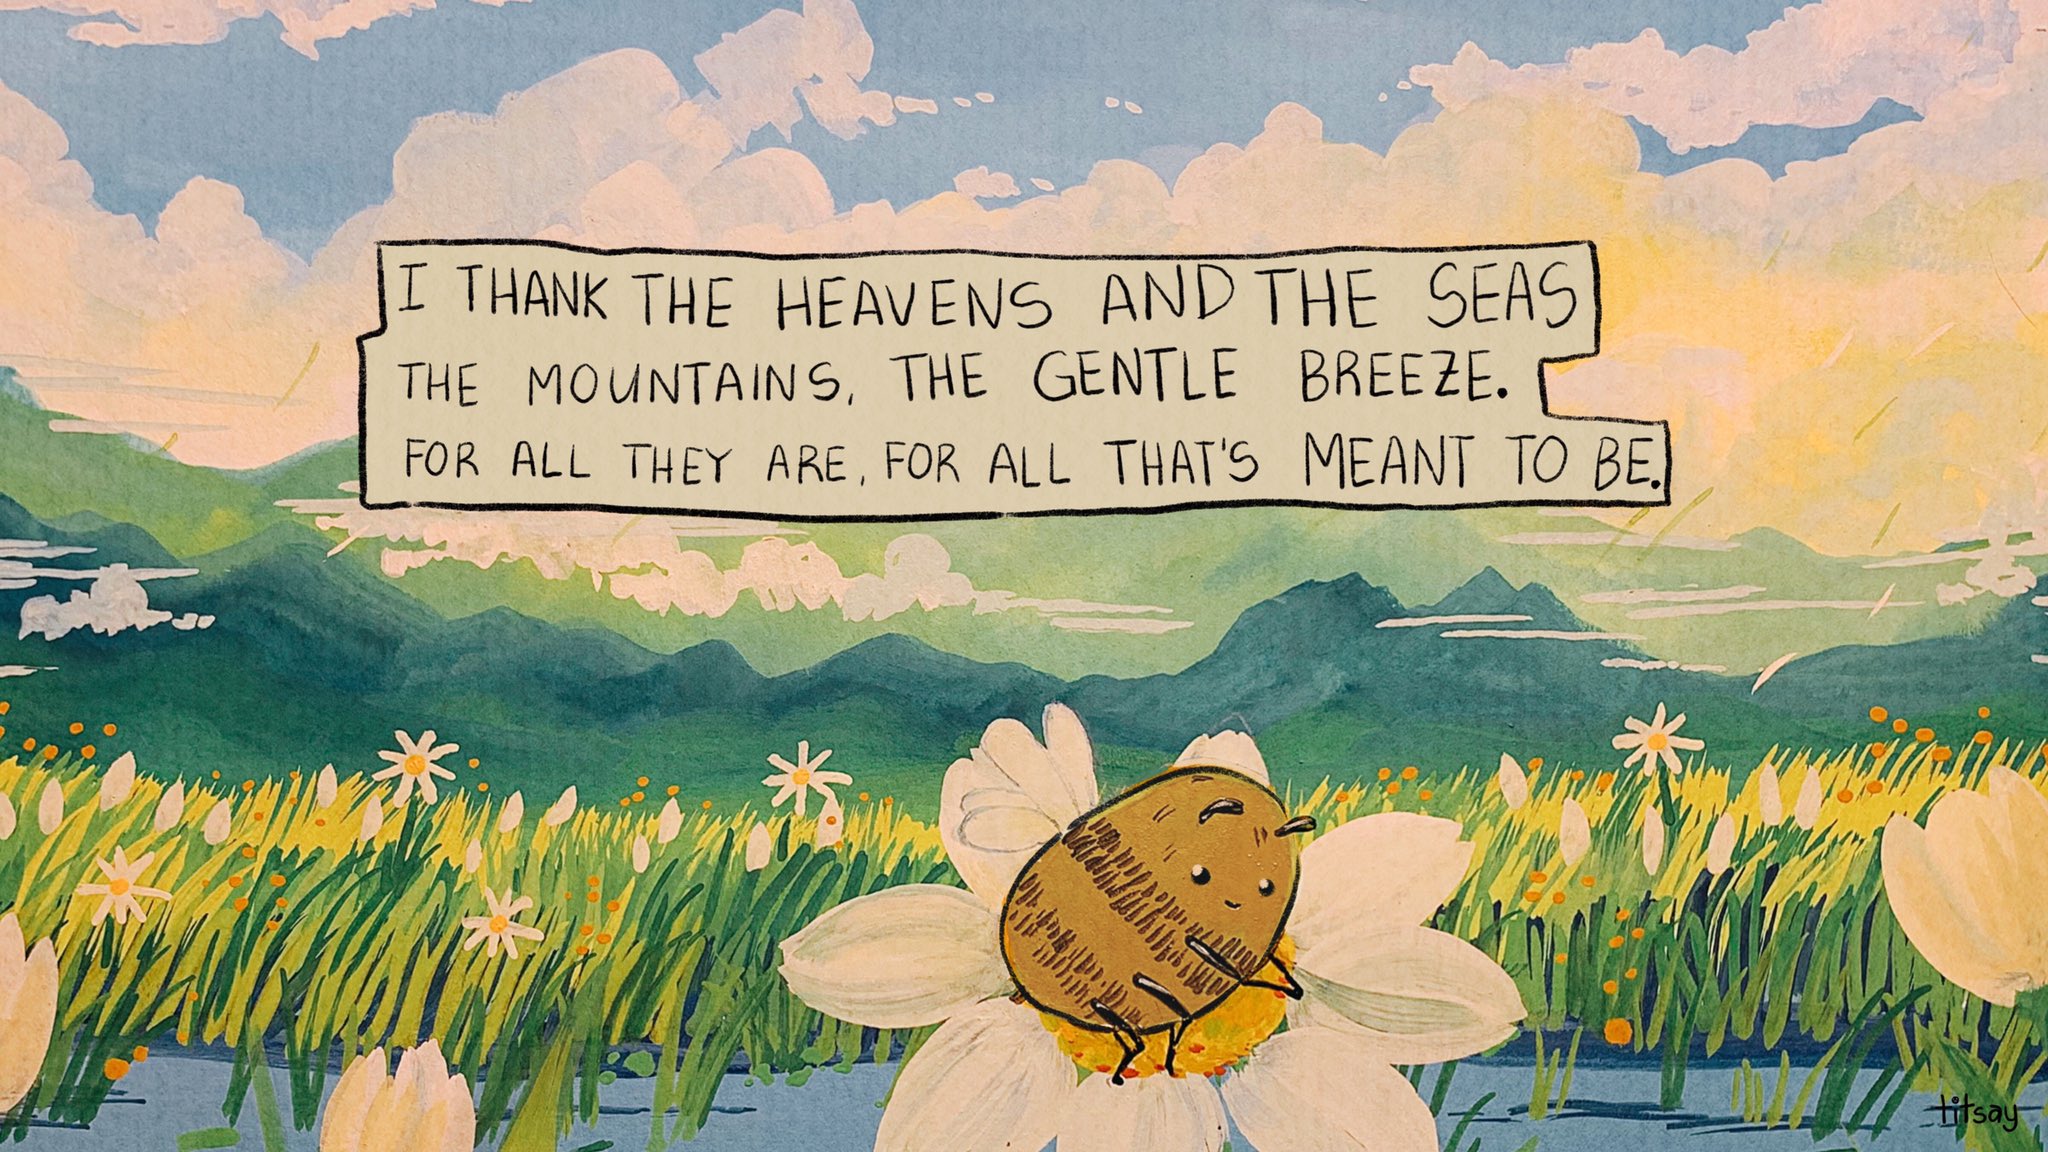 I THANK THE HEAVENS AND THE SEAS
THE MOUNTAINS, THE GENTLE BREEZE.
FOR ALL THEY ARE, FOR ALL THAT'S MEANT TO BE.
titsay